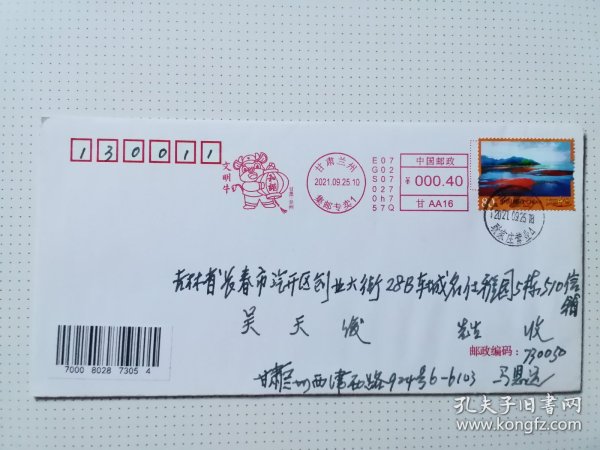 130011
文明牛
甘肃·兰州
甘肃兰州
2021.09.25.10
集邮专卖1
E07
G02
S07
027
0h7
57Q
中国邮政
¥ 000.40
甘 AA16
80
2021.09.25.18
吉林省长春市汽开区创业大街28B车城名仕雅园5栋510信箱
吴天俊 先生 收
邮政编码：730050
甘肃兰州西津西路924号6-6103 马思远
7000 8028 7305 4
孔夫子旧书网
www.kongfz.com